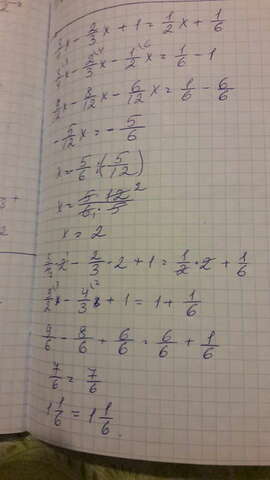 3/4x - 2/3x + 1 = 1/2x + 1/6
3/4x - 2/3x - 1/2x = 1/6 - 1
9/12x - 8/12x - 6/12x = 1/6 - 6/6
-5/12x = -5/6
x = 5/6 : (5/12)
x = 5/6 · 12/5 2
x = 2
3/4 · 2 - 2/3 · 2 + 1 = 1/2 · 2 + 1/6
3/2 - 4/3 + 1 = 1 + 1/6
9/6 - 8/6 + 6/6 = 6/6 + 1/6
7/6 = 7/6
1 1/6 = 1 1/6.